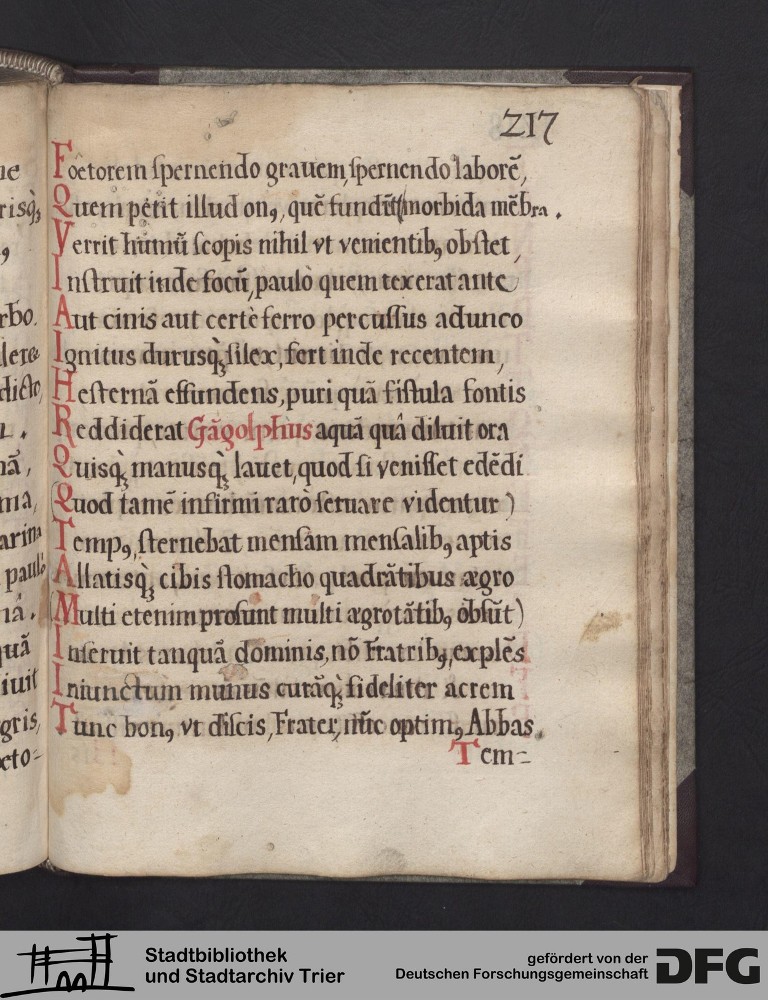 217
Foetorem spernendo grauem, spernendo laborē,
Quem petit illud onꝰ, quē fundūt morbida mēbra.
Verrit humū scopis nihil vt venientibꝫ obstet,
Instruit inde focū, paulò quem texerat ante
Aut cinis aut certè ferro percussus adunco
Ignitus durusqꝫ silex, fert inde recentem,
Hesternā effundens, puri quā fistula fontis
Reddiderat Gāgolphius aquā quâ diluit ora
Quisqꝫ manusqꝫ lauet, quod si venisset edēdi
(Quod tamē infirmi rarò seruare videntur)
Tempꝰ, sternebat mensam mensalibꝫ aptis
Allatisqꝫ cibis stomacho quadrātibus ægro
(Multi etenim prosunt multi ægrotātibꝫ òbsūt)
Inseruit tanquā dominis, nō Fratribꝫ, explēs
Iniunctum munus curāqꝫ fideliter acrem
Tunc bonꝰ, vt discis, Frater, nūc optimꝰ Abbas.
Tem=
ne
risqꝫ
rbo.
lere
dicto,
ma,
arina
paulo
quā
iuit
gris,
cto=
Stadtbibliothek
und Stadtarchiv Trier
gefördert von der
Deutschen Forschungsgemeinschaft
DFG